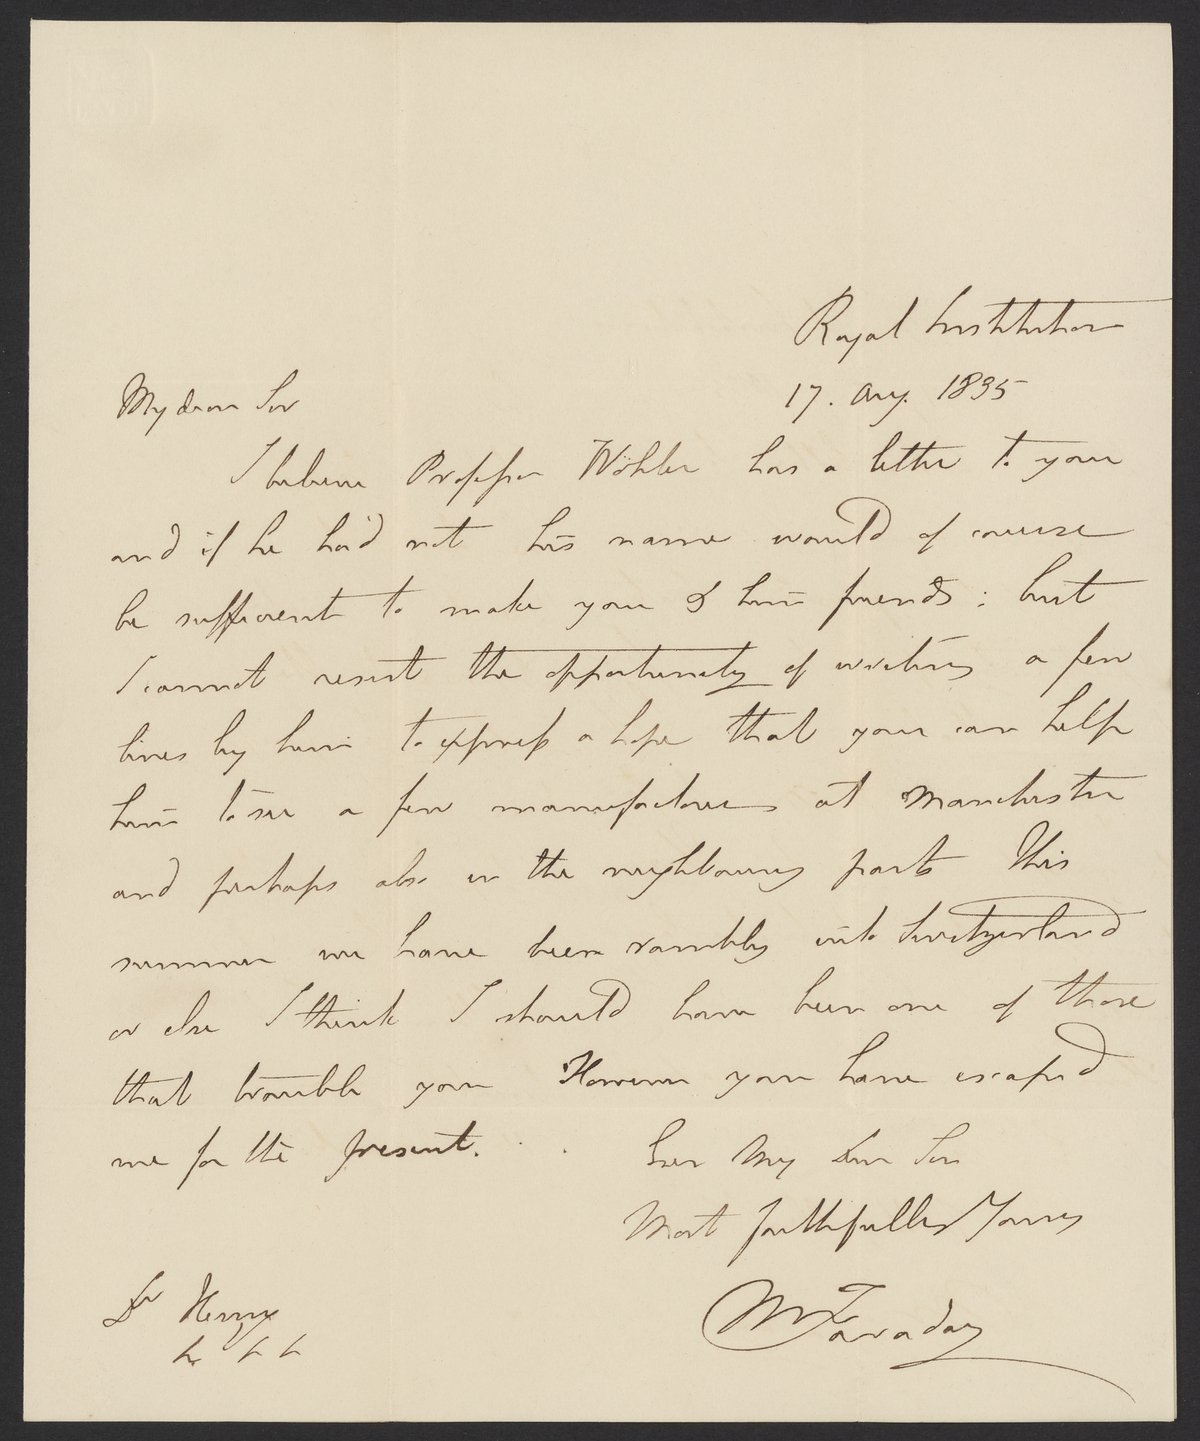 Royal Institution
17. Aug. 1835
My dear Sir
I believe Professor Wöhler has a letter to you
and if he had not his name would of course
be sufficient to make you & him friends; but
I cannot resist the opportunity of writing a few
lines by him to express a hope that you can help
him to see a few manufactories at Manchester
and perhaps also in the neighbouring parts This
summer we have been rambling into Switzerland
or else I think I should have been one of those
that trouble you However you have escaped
me for the present.
Ever My Dear Sir
Most faithfully Yours
M Faraday
Dr Henry
&c &c &c